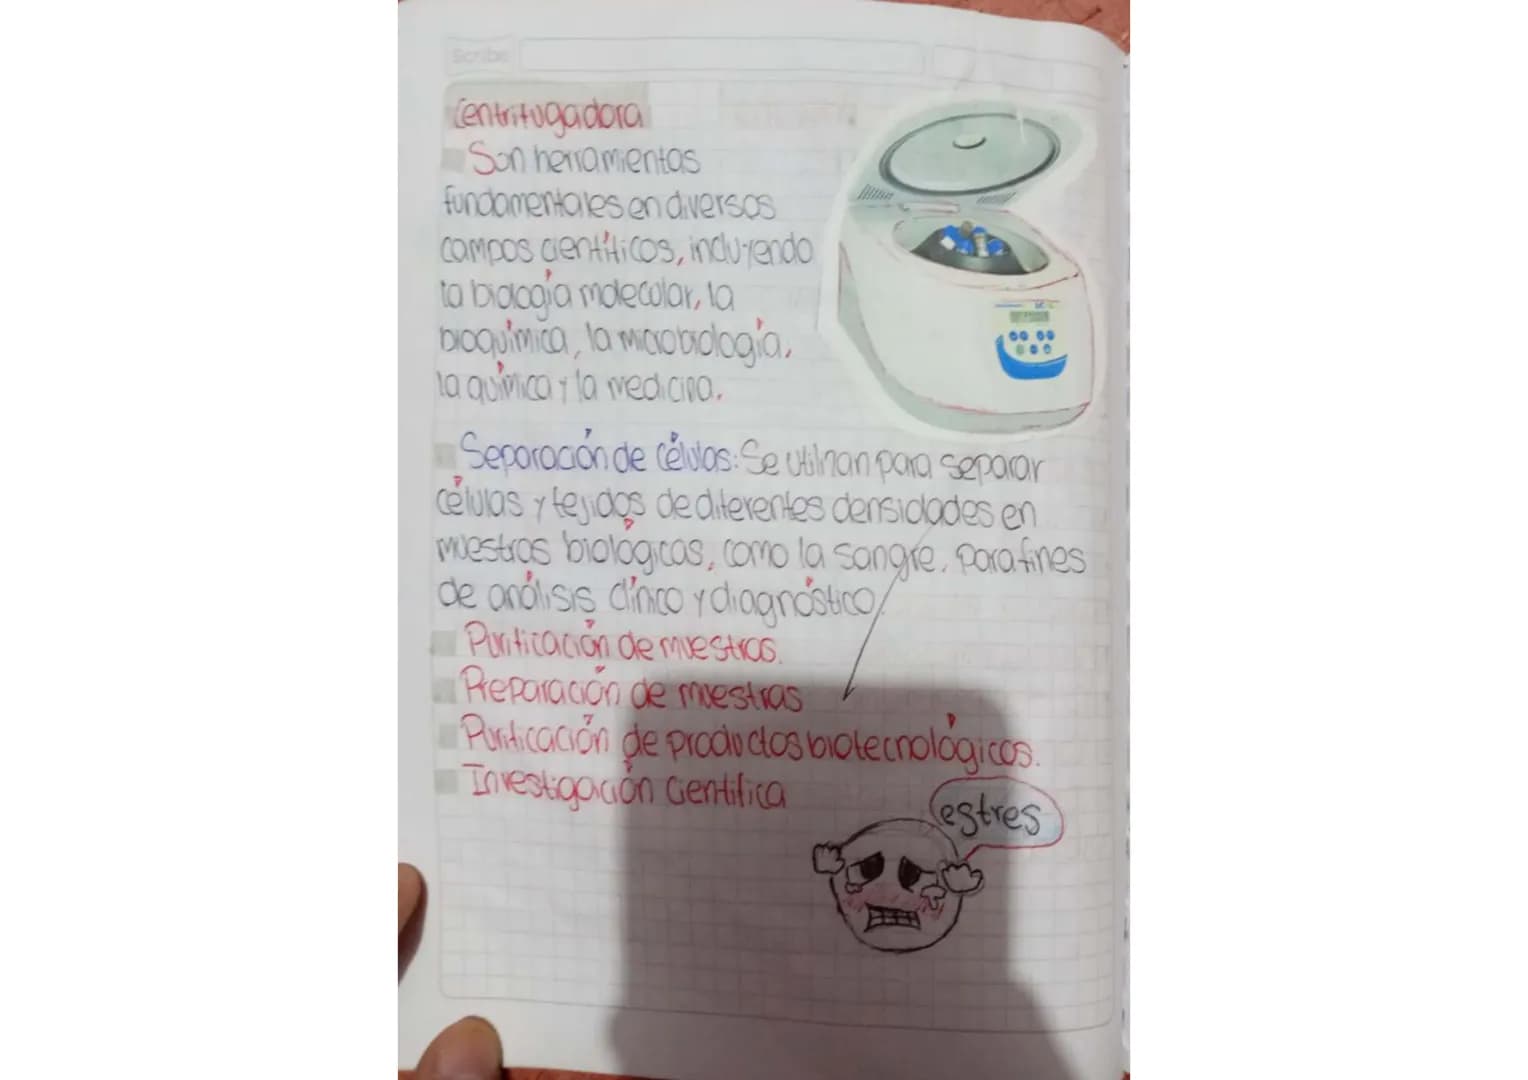 Scribe
Centrifugadora
Son herramientas
fundamentales en diversos
campos científicos, incluyendo
la biología molecular, la
bioquímica, la microbiología,
la química y la medicina.
Separación de células: Se utilizan para separar
células y tejidos de diferentes densidades en
muestras biológicas, como la sangre, para fines
de análisis clínico y diagnóstico.
Purificación de muestras.
Preparación de muestras
Purificación de productos biotecnológicos.
Investigación Científica
estres